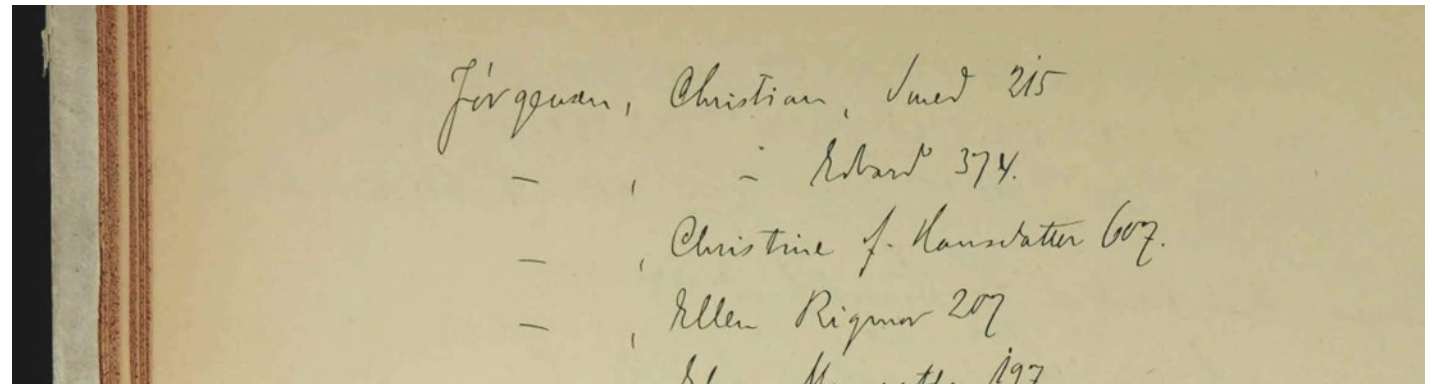 Jörgensen, Christian, Smed 215
— , — Edvard 374.
— , Christine f. Hansdatter 607.
— , Ellen Rigmor 207
197